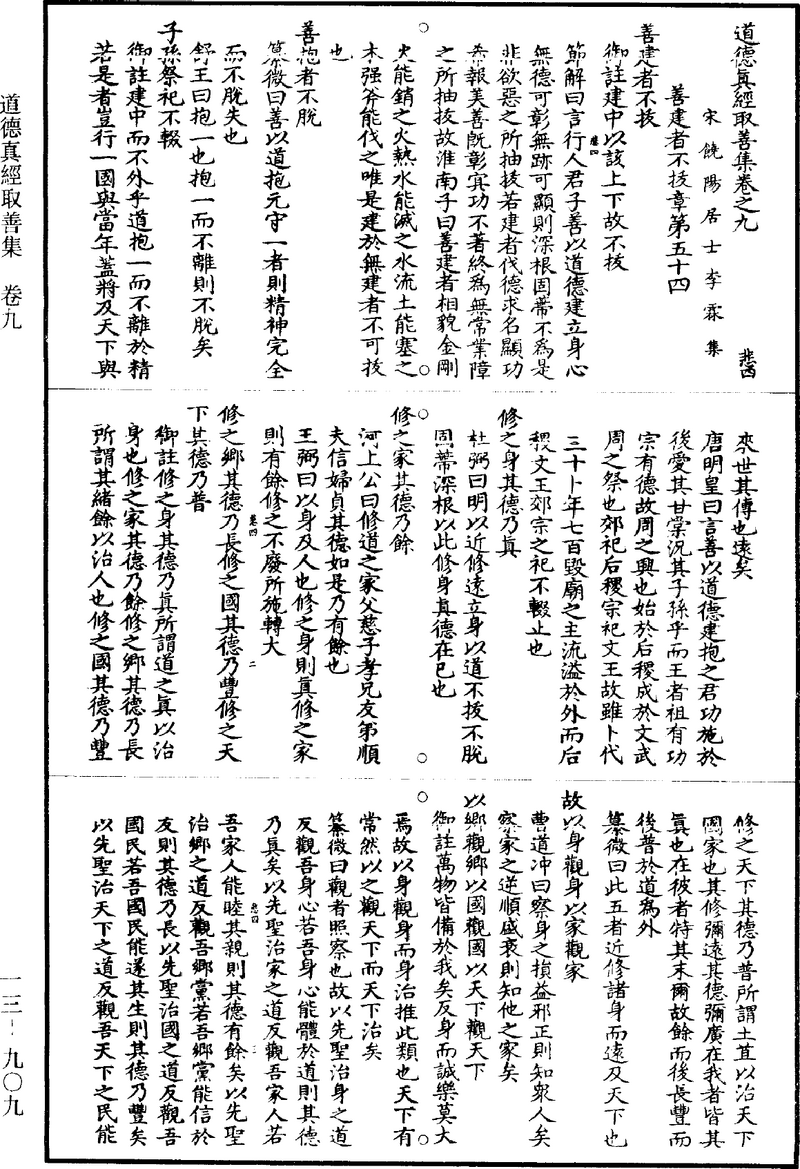 道德真經取善集卷之九
悲四
宋饒陽居士李霖集
善建者不拔章第五十四
善建者不拔
御註建中以該上下故不拔
節解曰言行人君子善以道德建立身心
無德可彰無跡可顯則深根固蔕不為是
非欲惡之所抽拔若建者伐德求名顯功
希報美善旣彰寘功不著終為無常業障
之所抽拔故淮南子曰善建者相貌金剛
火能銷之火熱水能滅之水流土能塞之
木强斧能伐之唯是建於無建者不可拔
也
善抱者不脫
纂微曰善以道抱元守一者則精神完全
而不脫失也
舒王曰抱一也抱一而不離則不脫矣
子孫祭祀不輟
御註建中而不外乎道抱一而不離於精
若是者豈行一國與當年蓋將及天下與
來世其傳也遠矣
唐明皇曰言善以道德建抱之君功施於
後愛其甘棠況其子孫乎而王者祖有功
宗有德故周之興也始於后稷成於文武
周之祭也郊祀后稷宗祀文王故雖卜代
三十卜年七百毀廟之主流溢於外而后
稷文王郊宗之祀不輟止也
修之身其德乃真
杜弼曰明以近修遠立身以道不拔不脫
固蔕深根以此修身真德在已也
修之家其德乃餘
河上公曰修道之家父慈子孝兄友弟順
夫信婦貞其德如是乃有餘也
王弼曰以身及人也修之身則真修之家
則有餘修之不廢所施轉大
修之鄉其德乃長修之國其德乃豐修之天
下其德乃普
御註修之身其德乃真所謂道之真以治
身也修之家其德乃餘修之鄉其德乃長
所謂其緒餘以治人也修之國其德乃豐
修之天下其德乃普所謂土苴以治天下
國家也其修彌遠其德彌廣在我者皆其
真也在彼者特其末爾故餘而後長豐而
後普於道為外
纂微曰此五者近修諸身而遠及天下也
故以身觀身以家觀家
曹道沖曰察身之損益邪正則知衆人矣
察家之逆順盛衰則知他之家矣
以鄉觀鄉以國觀國以天下觀天下
御註萬物皆備於我矣反身而誠樂莫大
焉故以身觀身而身治推此類也天下有
常然以之觀天下而天下治矣
纂微曰觀者照察也故以先聖治身之道
反觀吾身心若吾身心能體於道則其德
乃真矣以先聖治家之道反觀吾家人若
吾家人能睦其親則其德有餘矣以先聖
治鄉之道反觀吾鄉黨若吾鄉黨能信於
友則其德乃長以先聖治國之道反觀吾
國民若吾國民能遂其生則其德乃豐矣
以先聖治天下之道反觀吾天下之民能
道德真經取善集 卷九
一三－九〇九